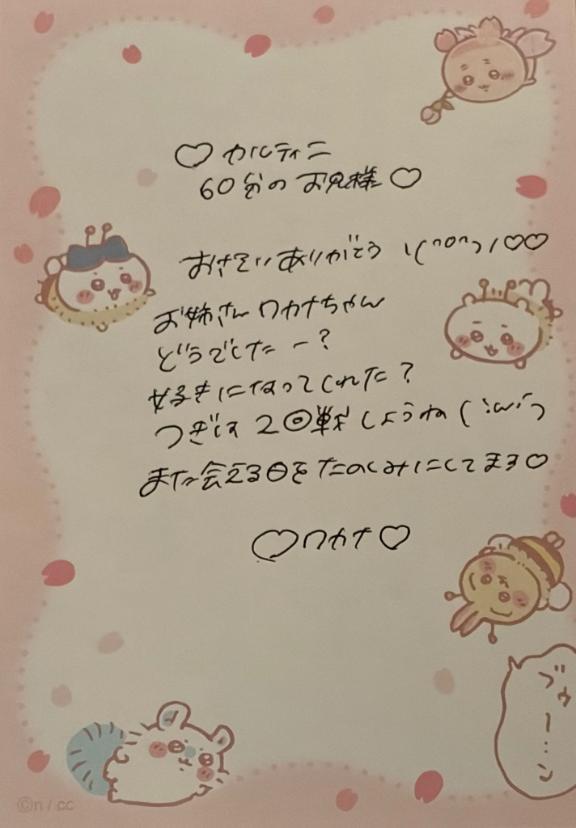 ♡ カルティニ
60分の お兄様 ♡
おさそい ありがとう \(^o^)/♡♡
お姉さん ワカナちゃん
どうでしたー?
好きになってくれた?
つぎは 2回戦 しようね (
また会える日を たのしみにしてます♡
♡ワカナ♡
ブゥー…ン
©n / cc